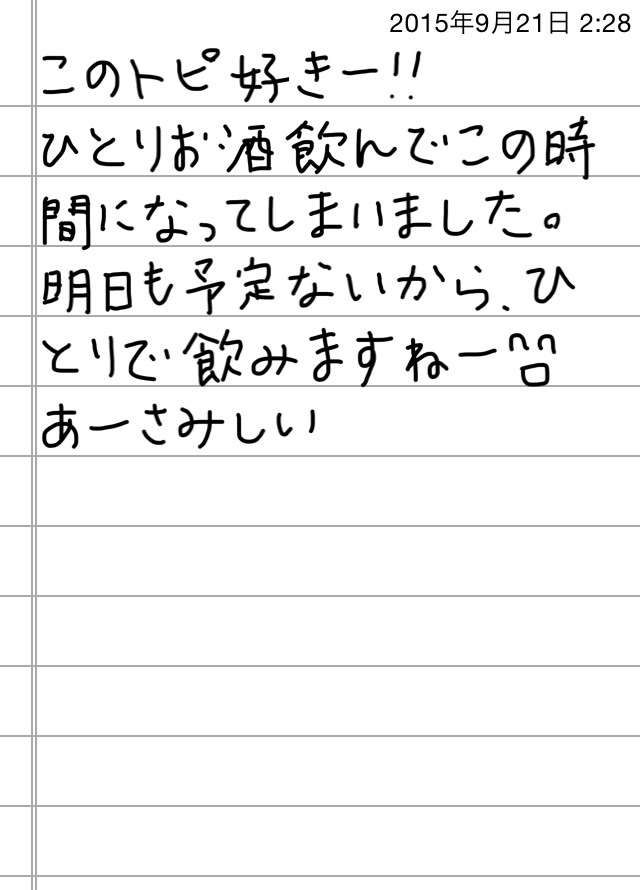 2015年9月21日 2:28
このトピ好きー!!
ひとりお酒飲んでこの時
間になってしまいました。
明日も予定ないから、ひ
とりで飲みますねー
あーさみしい